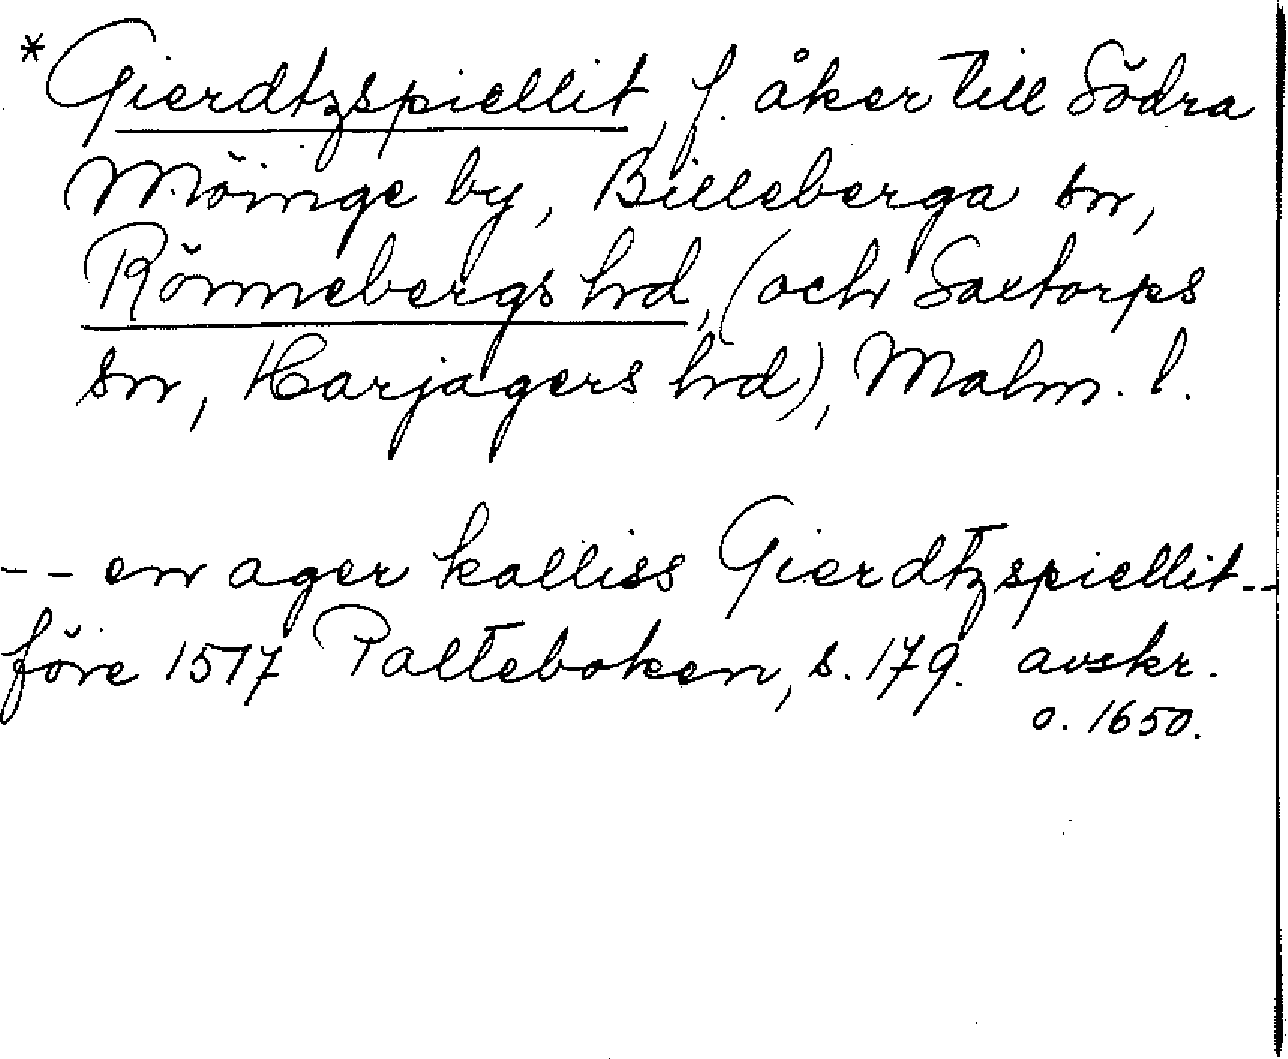 * Gierdtzspiellit, f. åker till Södra
Möinge by, Billeberga sn,
Rönnebergs hd, (och Saxtorps
sn, Harjagers hd), Malm. l.
-- en ager kalliss Gierdtzspiellit--
före 1517 Palteboken, s. 179. avskr.
o. 1650.